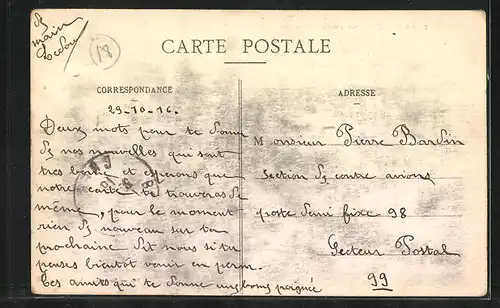 main
18
CARTE POSTALE
CORRESPONDANCE
ADRESSE
29-10-16.
Deux mots pour te donne
de nos nouvelles qui sont
tres bonne et esperons que
notre carte te trouveras de
même, pour le moment
rien de nouveau sur ta
prochaine dit nous si tu
penses bientot venir en perm.
Les amits qui te donne une bonns poignée
Monsieur Pierre Bardin
Section de contre avions
poste demi fixe 98
Secteur Postal
99